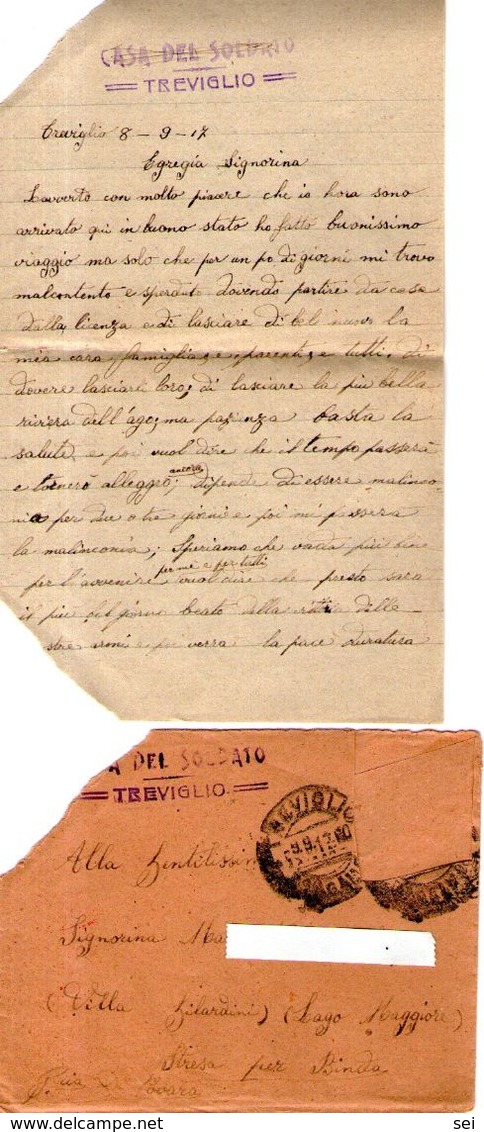 CASA DEL SOLDATO
TREVIGLIO
Treviglio 8-9-17
Egregia Signorina
L'avverto con molto piacere che io hora sono
arrivato qui in buono stato ho fatto buonissimo
viaggio ma solo che per un po di giorni mi trovo
malcontento e sperduto dovendo partire da casa
dalla licenza e di lasciare di bel nuovo la
mia cara famiglia, e parenti, e tutti, di
dovere lasciarli loro; di lasciare la più bella
riviera dell'ago; ma pazienza basta la
salute, e poi vuol dire che il tempo passerà
e tornerò alleggro ancora; dipende di essere malinco-
nia per due o tre giorni e poi mi passera
la malinconia; Speriamo che vada più bene
per l'avvenire per me e per tutti vuol dire che presto sara
il più bel giorno beato della delle
armi e poi verrà la pace duratura
A DEL SOLDATO
TREVIGLIO
TREVIGLIO
9.9.17
Alla Gentilissim
Signorina Ma
(Villa Gilardini) (Lago Maggiore)
Stresa per Binda
sei